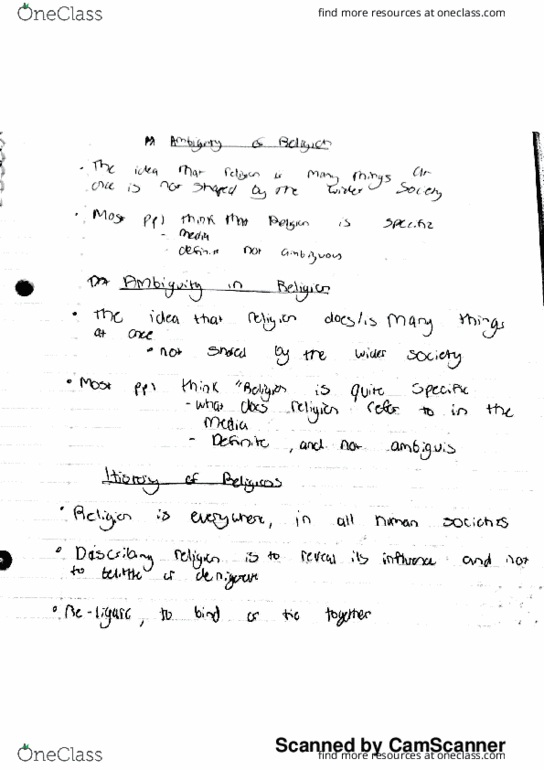 OneClass
find more resources at oneclass.com
Ambiguity of Religion
• The idea that religion is many things at
once is not shared by the wider society
• Most ppl think that Religion is specific
- media
- definite not ambiguous
Ambiguity in Religion
• The idea that religion does/is many things
at once
• not shared by the wider society
• Most ppl think "Religion is quite specific
- what does religion refer to in the
media
- Definite, and not ambiguis
History of Religions
• Religion is everywhere, in all human societies
• Describing religion is to reveal its influence and not
to belittle or denigrate
• Re-ligare, to bind or tie together
Scanned by CamScanner
OneClass
find more resources at oneclass.com